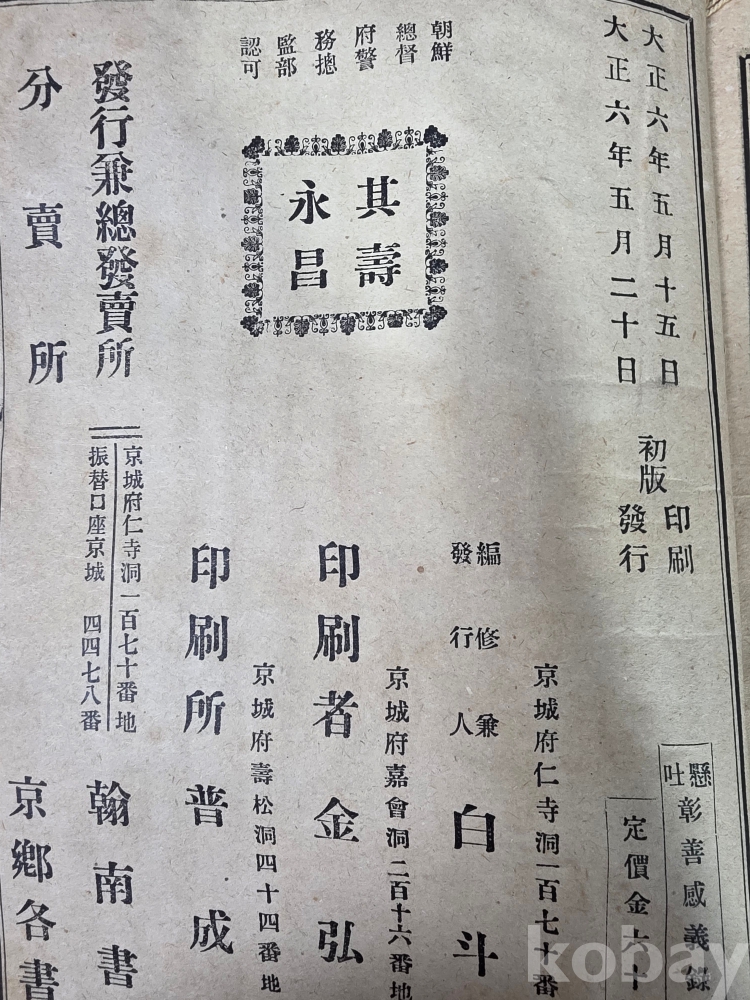 大正六年五月十五日 印刷
大正六年五月二十日 初版 發行
懸吐彰善感義錄
定價金六十
京城府仁寺洞一百七十番
編修兼
發行人 白斗
京城府嘉會洞二百十六番地
印刷者 金弘
京城府壽松洞四十四番地
印刷所 普成
朝鮮
總督
府警
務摠
監部
認可
其壽
永昌
發行兼總發賣所
京城府仁寺洞一百七十番地
振替口座京城 四四七八番
翰南書
分賣所 京鄉各書
kobay